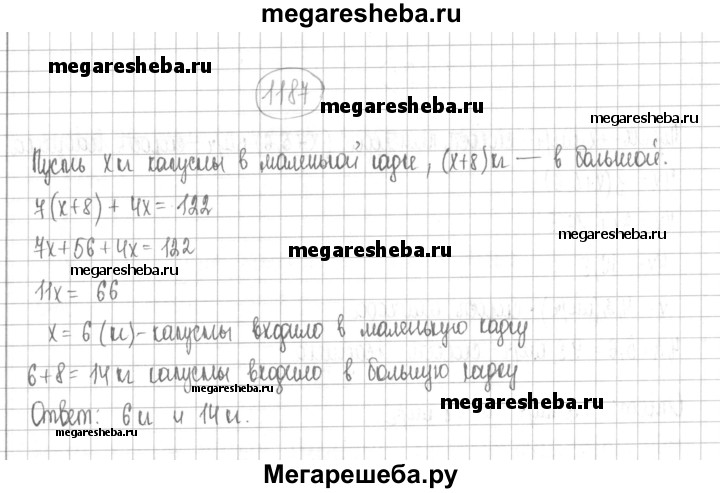 megaresheba.ru
megaresheba.ru
1187
megaresheba.ru
megaresheba.ru
Пусть х кг капусты в маленькой кадке, (х+8) кг — в большой.
7(х+8) + 4х = 122
megaresheba.ru
7х+56+4х = 122
megaresheba.ru
megaresheba.ru
11х = 66
х = 6 (кг) - капусты входило в маленькую кадку
6+8 = 14 кг капусты входило в большую кадку
megaresheba.ru
megaresheba.ru
Ответ: 6 кг и 14 кг.
megaresheba.ru
Мегарешеба.ру